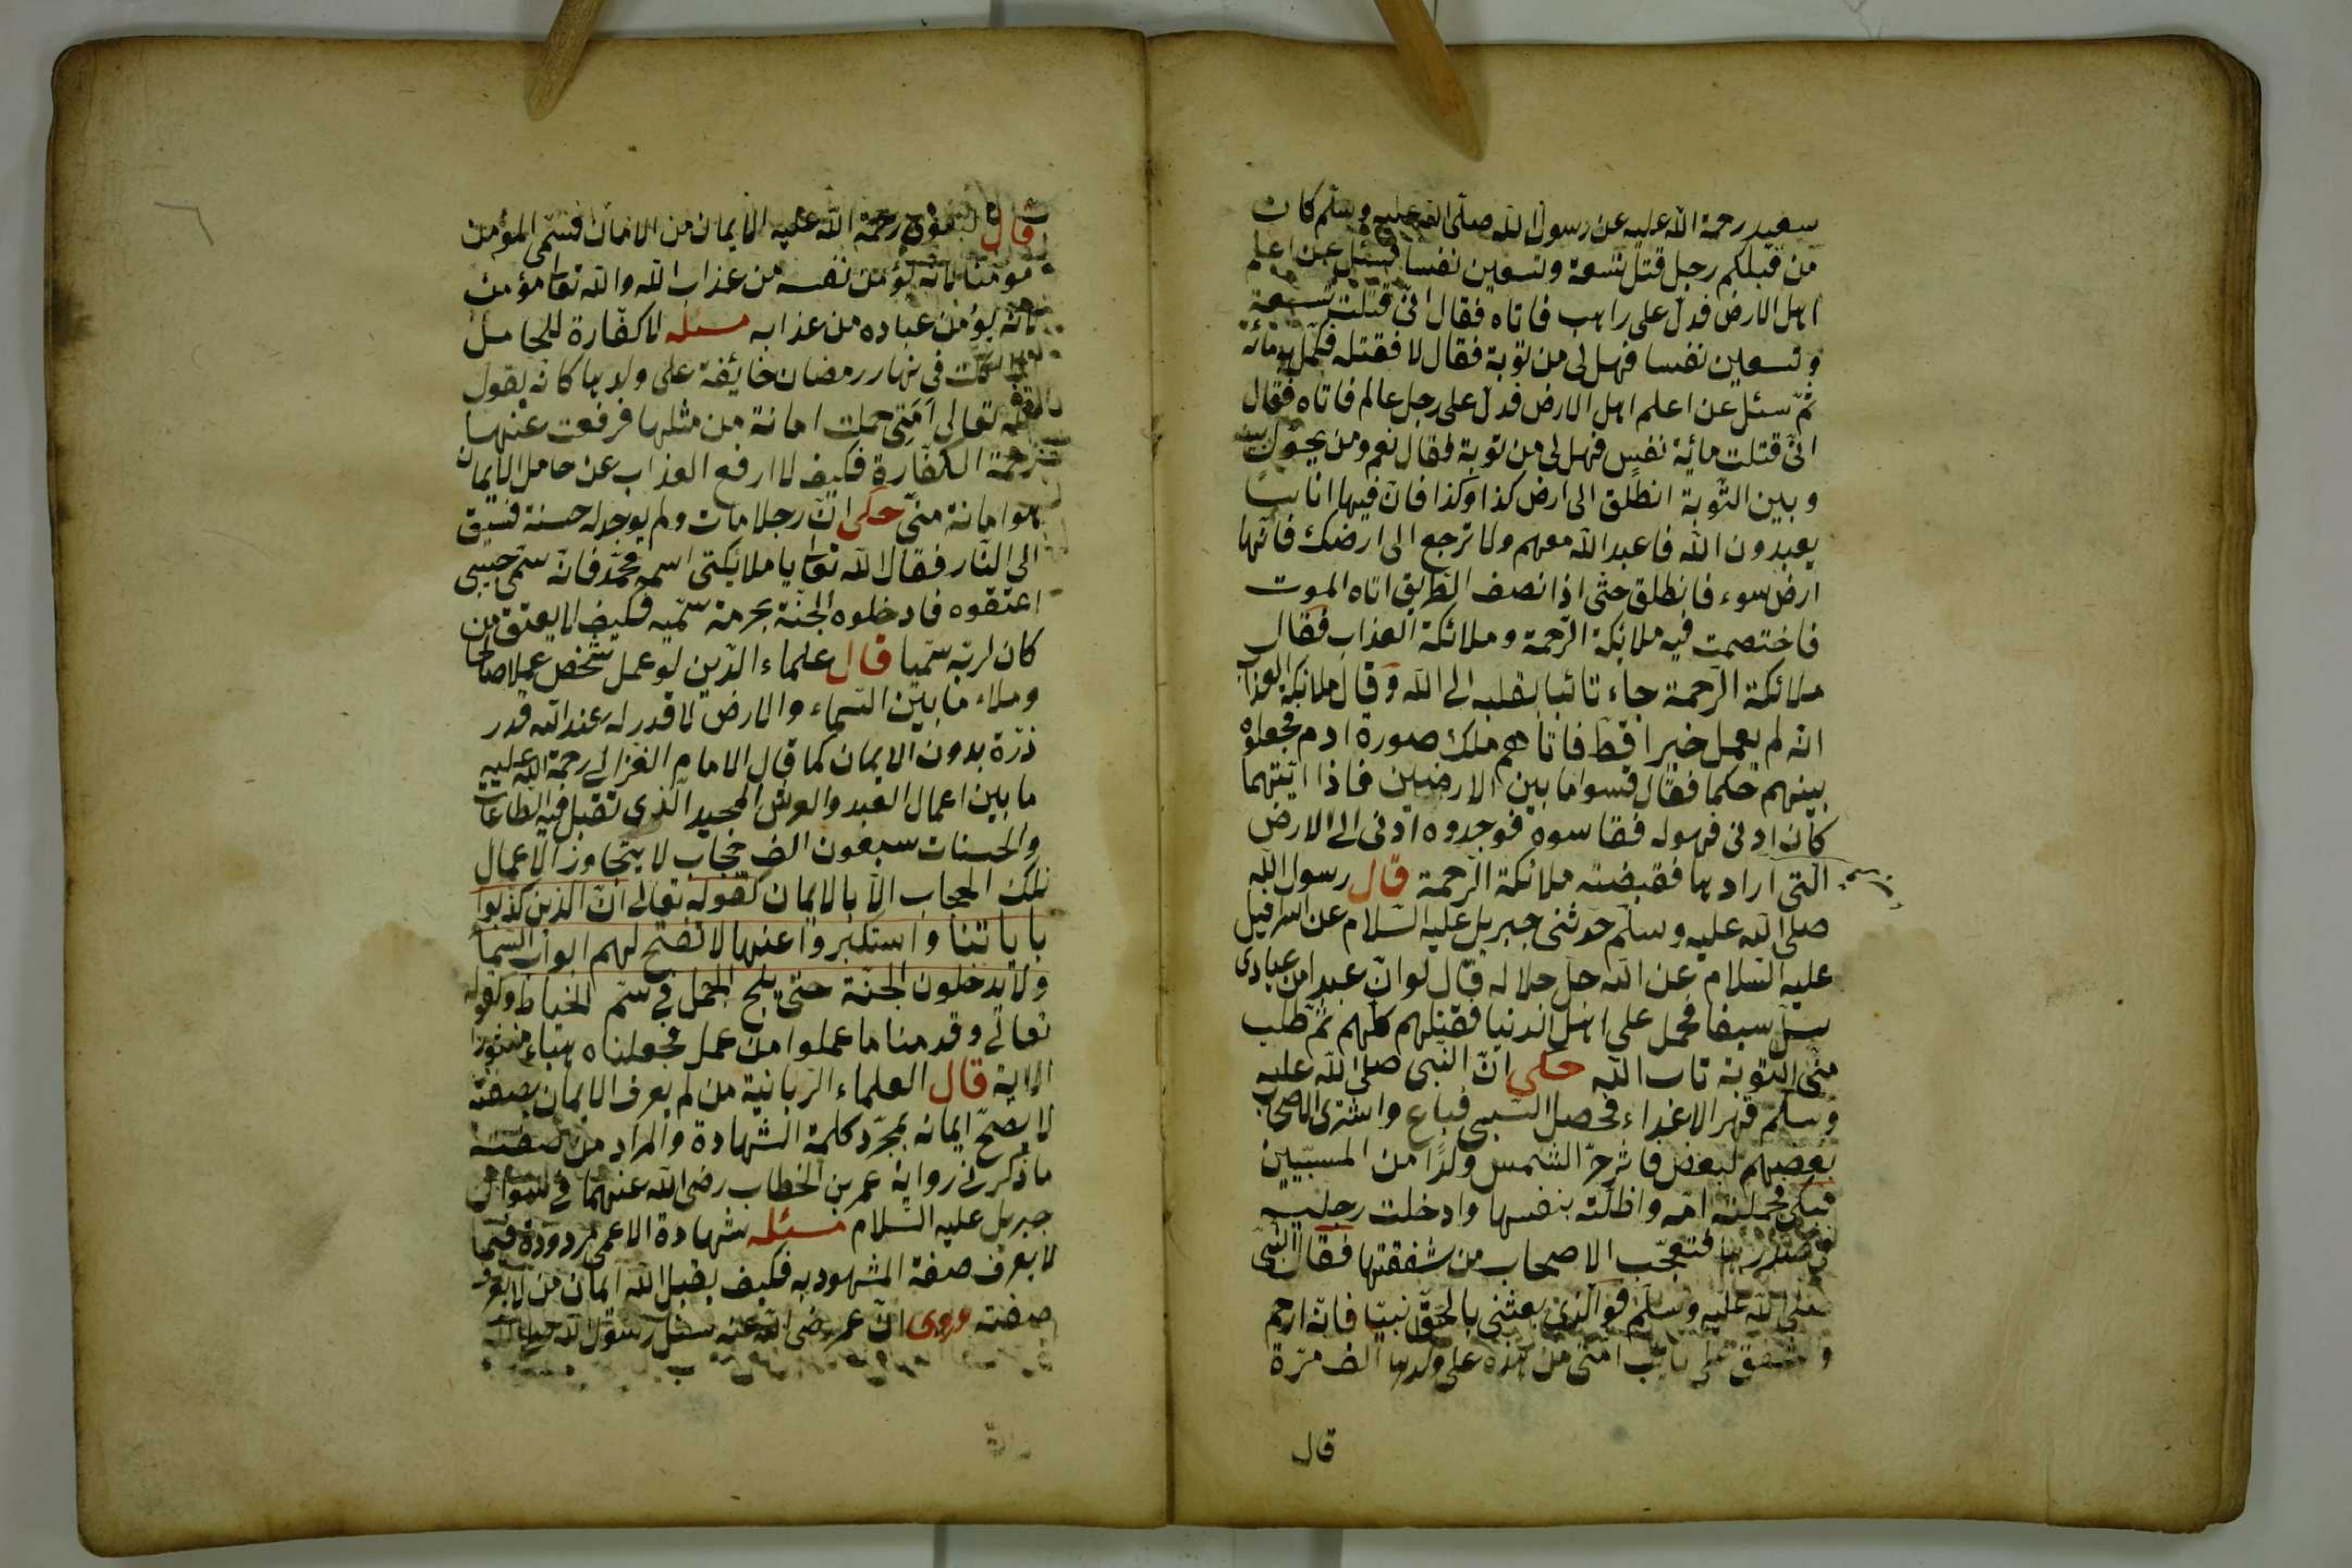 سعيد رحمة الله عليه عن رسول الله صلى الله عليه وسلم كان
من قبلكم رجل قتل تسعة وتسعين نفسا فسئل عن اعلم
اهل الارض فدل على راهب فاتاه فقال انى قتلت تسعة
وتسعين نفسا فهل لى من توبة فقال لا فقتله فكمل به مائة
ثم سئل عن اعلم اهل الارض فدل على رجل عالم فاتاه فقال
انى قتلت مائة نفس فهل لى من توبة فقال نعم ومن يحول بينه
وبين التوبة انطلق الى ارض كذا وكذا فان فيها اناسا
يعبدون الله فاعبد الله معهم ولا ترجع الى ارضك فانها
ارض سوء فانطلق حتى اذا نصف الطريق اتاه الموت
فاختصمت فيه ملائكة الرحمة وملائكة العذاب فقال
ملائكة الرحمة جاء تائبا بقلبه الى الله وقال ملائكة العذاب
انه لم يعمل خيرا قط فاتاهم ملك صورة ادم فجعلوه
بينهم حكما فقال قسوا ما بين الارضين فاذا ايتهما
كان ادنى فهو له فقاسوه فوجدوه ادنى الى الارض
التى اراد بها فقبضته ملائكة الرحمة قال رسول الله
صلى الله عليه وسلم حدثنى جبريل عليه السلام عن اسرافيل
عليه السلام عن الله جل جلاله قال لو ان عبدا من عبادى
سل سيفا فحمل على اهل الدنيا فقتلهم كلهم ثم طلب
منى التوبة تاب الله حكى ان النبى صلى الله عليه
وسلم قهر الاعداء فحصل السبى فباع واشترى الاصحاب
بعضهم لبعض فاثر حر الشمس ولدا من المسبيين
فبكى فحملته امه واظلته بنفسها وادخلت رجليه
فى صدرها فتعجب الاصحاب من شفقتها فقال النبى
صلى الله عليه وسلم فو الذى بعثنى بالحق نبيا فانه ارحم
واشفق على امتى من هذه على ولدها الف مرة
قال
قال رحمة الله عليه الايمان من الامان فسمى المؤمن
مومنا لانه يؤمن نفسه من عذاب الله والله تعا مؤمن
لانه يؤمن عباده من عذابه مسئله لا كفارة للحامل
اذا اكلت فى نهار رمضان خائفة على ولدها كانه يقول
الله تعالى امتى حملت امانة من مثلها فرفعت عنها
زحمة الكفارة فكيف لا ارفع العذاب عن حامل الايمان
هو امانة منى حكى ان رجلا مات ولم يوجد له حسنة فسيق
الى النار فقال الله تعا يا ملائكتى اسمه محمد فانه سمى حبيبى
اعتقوه فادخلوه الجنة بحرمة سميه فكيف لا يعتق من
كان لربه سميا قال علماء الدين لو عمل شخص عملا صالحا
وملاء ما بين السماء والارض لا قدر له عند الله قدر
ذرة بدون الايمان كما قال الامام الغزالى رحمة الله عليه
ما بين اعمال العبد والعرش المجيد الذى تقبل فيه الطاعات
والحسنات سبعون الف حجاب لا يتجاوز الاعمال
تلك الحجاب الا بالايمان كقوله تعالى ان الذين كذبوا
باياتنا واستكبروا عنها لا تفتح لهم ابواب السما
ولا يدخلون الجنة حتى يلج الجمل فى سم الخياط وقوله
تعالى وقدمنا ما عملوا من عمل فجعلناه هباء منثورا
الاية قال العلماء الربانية من لم يعرف الايمان بصفته
لا يصح ايمانه بمجرد كلمة الشهادة والمراد من صفته
ما ذكر فى رواية عمر بن الخطاب رضى الله عنهما فى سوال
جبريل عليه السلام مسئله شهادة الاعمى مردودة فيما
لا يعرف صفة المشهود به فكيف يقبل الله ايمان من لا يعرف
صفته وروى ان عمر رضى الله عنه سئل رسول الله صلى الله